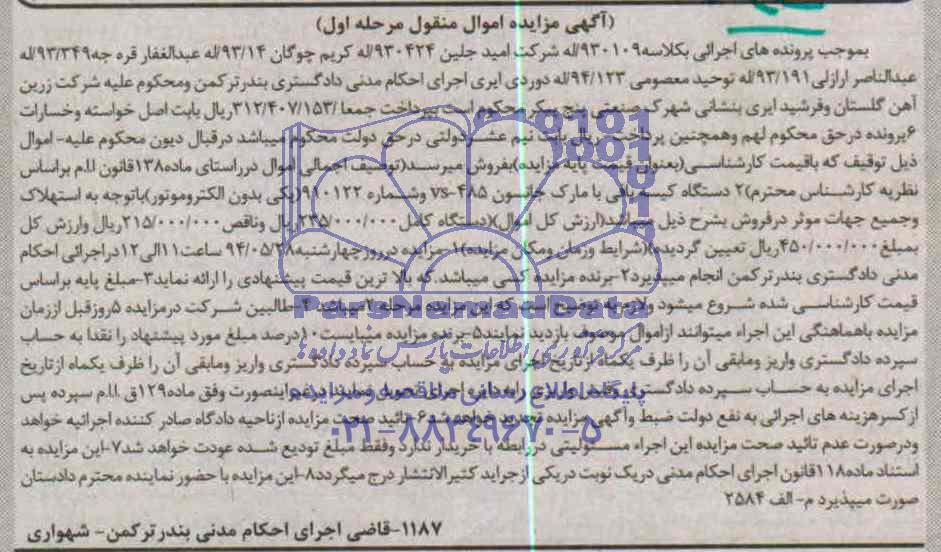 (آگهی مزایده اموال منقول مرحله اول)
بموجب پرونده های اجرائی بکلاسه۹۳۰۱۰۹/له شرکت امید جلین ۹۳۰۴۲۴/له کریم چوگان ۹۳/۱۴/له عبدالغفار قره جه۹۳/۳۴۹/له
عبدالناصر ارازلی۹۳/۱۹۱/له توحید معصومی ۹۴/۱۲۳/له دوردی ایری اجرای احکام مدنی دادگستری بندرترکمن ومحکوم علیه شرکت زرین
آهن گلستان وفرشید ایری بنشانی شهرک صنعتی پنج پیکر محکوم است به پرداخت جمعا ۳۱۲/۴۰۷/۱۵۳ریال بابت اصل خواسته وخسارات
۶پرونده درحق محکوم لهم وهمچنین پرداخت ریال بابت نیم عشردولتی درحق دولت محکوم میباشد درقبال دیون محکوم علیه-اموال
ذیل توقیف که باقیمت کارشناسی(بعنوان قیمت پایه مزایده)بفروش میرسد(توصیف اجمالی اموال درراستای ماده۱۳۸قانون ا.ا.م براساس
نظریه کارشناس محترم)۲ دستگاه کیسه بافی با مارک جانسون vs-۴۸۵ وشماره ۹۱۰۱۲۲(یکی بدون الکتروموتور)باتوجه به استهلاک
وجمیع جهات موثر درفروش بشرح ذیل میباشد(ارزش کل اموال)(دستگاه کامل ۲۳۵/۰۰۰/۰۰۰ریال وناقص ۲۱۵/۰۰۰/۰۰۰ریال وارزش کل
بمبلغ۴۵۰/۰۰۰/۰۰۰ریال تعیین گردیده)(شرایط وزمان ومکان مزایده)۱-مزایده درروزچهارشنبه۹۴/۰۵/۲۸ ساعت۱۱الی۱۲دراجرائی احکام
مدنی دادگستری بندرترکمن انجام میپذیرد۲-برنده مزایده کسی میباشد.که بالا ترین قیمت پیشنهادی را ارائه نماید۳-مبلغ پایه براساس
قیمت کارشناسی شده شروع میشود ولازم به توضیح است که این مزایده مرحله میباشد۴-طالبین شرکت درمزایده ۵روزقبل اززمان
مزایده باهماهنگی این اجراء میتوانند ازاموال موصوف بازدید نمایند۵-برنده مزایده میبایست۱۰درصد مبلغ مورد پیشنهاد را نقدا به حساب
سپرده دادگستری واریز ومابقی آن را ظرف یکماه ازتاریخ اجرای مزایده به حساب سپرده دادگستری واریز ومابقی آن را ظرف یکماه ازتاریخ
اجرای مزایده به حساب سپرده دادگستری واریز وفیش واریزی را به این اجرای تحویل نمایند.درغیراینصورت وفق ماده۱۲۹ق.ا.ا.م سپرده پس
ازکسرهزینه های اجرائی به نفع دولت ضبط وآگهی مزایده تجدید خواهد شد۶-تائید صحت مزایده ازناحیه دادگاه صادر کننده اجرائیه خواهد
ودرصورت عدم تائید صحت مزایده این اجراء مسئولیتی دررابطه با خریدار ندارد وفقط مبلغ تودیع شده عودت خواهد شد۷-این مزایده به
استناد ماده۱۱۸قانون اجرای احکام مدنی دریک نوبت دریکی ازجراید کثیرالانتشار درج میگردد۸-این مزایده با حضور نماینده محترم دادستان
صورت میپذیرد م-الف ۲۵۸۴
۱۱۸۷-قاضی اجرای احکام مدنی بندرترکمن-شهواری
ParsNamadData
پایگاه اطلاع رسانی مناقصه و مزایده
۰۲۱-۸۸۳۴۹۶۷۰-۵